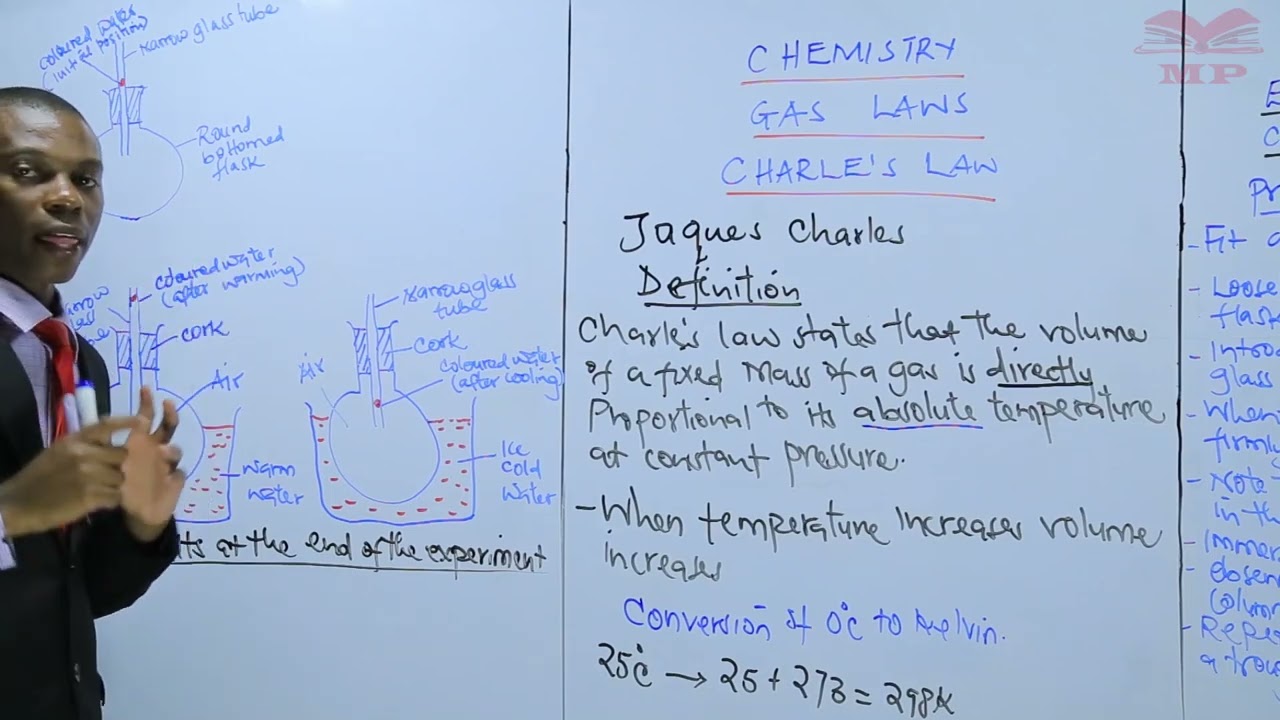 coloured water
(initial position)
Narrow glass tube
Round
bottomed
flask
coloured water
(after warming)
cork
Air
warm
water
Narrow glass
tube
cork
coloured water
(after cooling)
Air
Ice
cold
water
at the end of the experiment
CHEMISTRY
GAS LAWS
CHARLE'S LAW
Jaques Charles
Definition
Charle's law states that the volume
of a fixed Mass of a gas is directly
Proportional to its absolute temperature
at constant pressure.
- When temperature increases volume
increases
Conversion of 0°C to Kelvin.
25°C → 25 + 273 = 298K
MP
- Fit a
- Loose
flas
- Intro
glass
- When
firmly
- Note
in the
- Immer
- Obser
Colum
- Repe
a trou